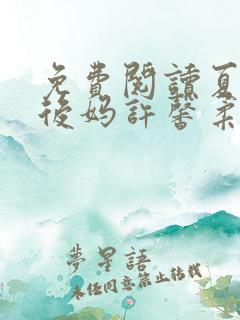 免費閱讀夏
後媽許馨柔
夢星語
未經同意禁止轉載